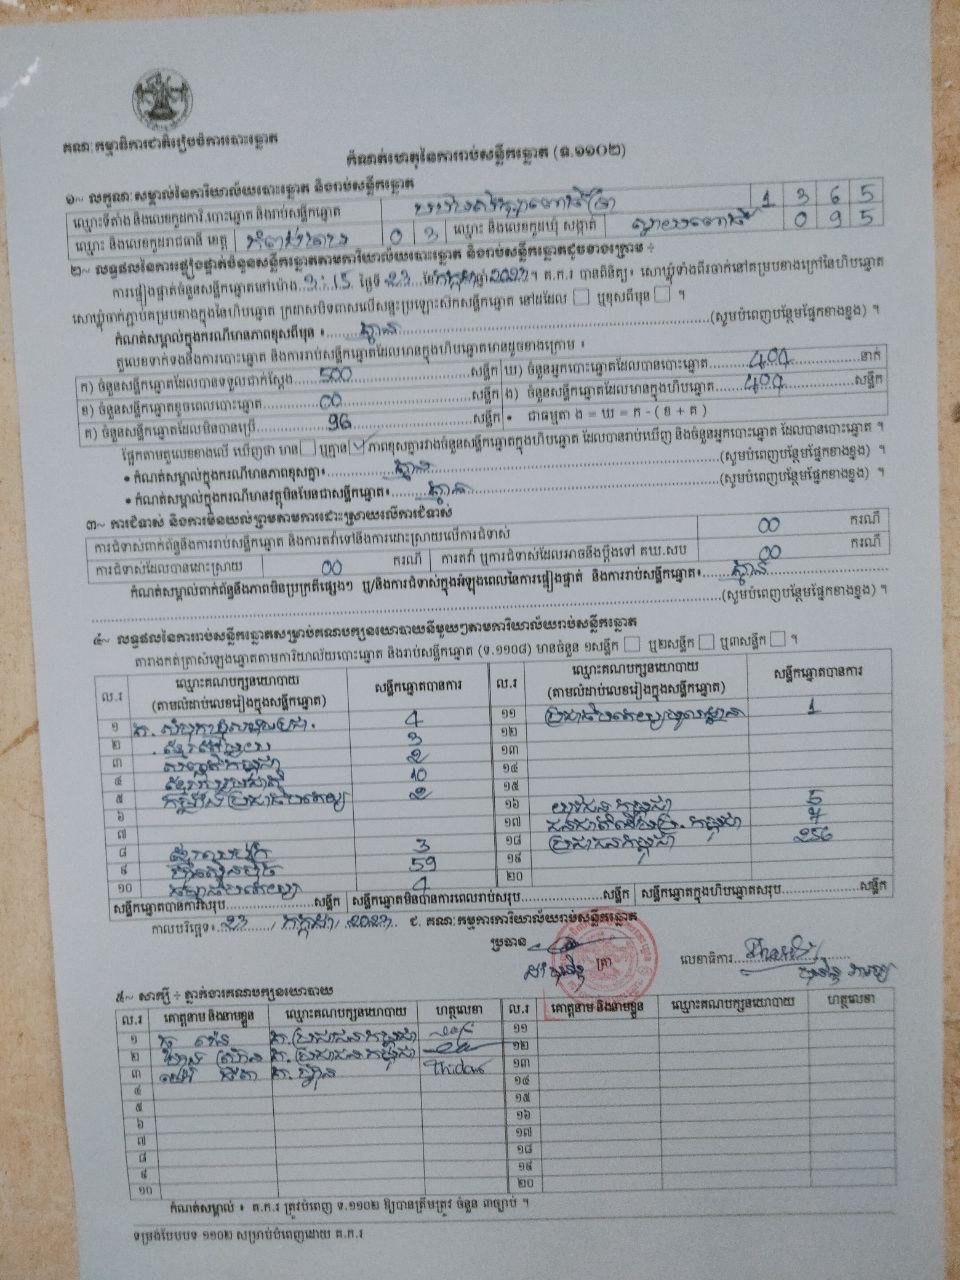 គណៈកម្មាធិការជាតិរៀបចំការបោះឆ្នោត
កំណត់ហេតុនៃការរាប់សន្លឹកឆ្នោត (ទ.១១០២)
១~ លក្ខណៈសម្គាល់នៃការិយាល័យបោះឆ្នោត និងរាប់សន្លឹកឆ្នោត
ឈ្មោះទីតាំង និងលេខកូដការិ.បោះឆ្នោត និងរាប់សន្លឹកឆ្នោត 1 3 6 5
ឈ្មោះ និងលេខកូដរាជធានី ខេត្ត កំពង់ចាម 0 3 ឈ្មោះ និងលេខកូដឃុំ សង្កាត់ 0 9 5
២~ លទ្ធផលនៃការផ្ទៀងផ្ទាត់ចំនួនសន្លឹកឆ្នោតតាមការិយាល័យបោះឆ្នោត និងរាប់សន្លឹកឆ្នោតដូចខាងក្រោម ៖
ការផ្ទៀងផ្ទាត់ចំនួនសន្លឹកឆ្នោតនៅម៉ោង 3:15 ថ្ងៃទី 23 ខែ កក្កដា ឆ្នាំ 2023 ។ គ.ក.រ បានពិនិត្យ៖ សោឃ្លុំទាំងពីរចាក់នៅគម្របខាងក្រៅនៃហិបឆ្នោត
សោឃ្លុំចាក់ភ្ជាប់គម្របខាងក្នុងនៃហិបឆ្នោត ក្រដាសបិទពាសលើសន្ទះប្រឡោះស៊កសន្លឹកឆ្នោត នៅដដែល ឬខុសពីមុន ។
កំណត់សម្គាល់ក្នុងករណីមានភាពខុសពីមុន ៖ គ្មាន (សូមបំពេញបន្ថែមផ្នែកខាងខ្នង) ។
តួលេខទាក់ទងនឹងការបោះឆ្នោត និងការរាប់សន្លឹកឆ្នោតដែលមានក្នុងហិបឆ្នោតមានដូចខាងក្រោម ៖
ក) ចំនួនសន្លឹកឆ្នោតដែលបានទទួលជាក់ស្តែង 500 សន្លឹក ឃ) ចំនួនអ្នកបោះឆ្នោតដែលបានបោះឆ្នោត 404 នាក់
ខ) ចំនួនសន្លឹកឆ្នោតខូចពេលបោះឆ្នោត 00 សន្លឹក ង) ចំនួនសន្លឹកឆ្នោតដែលមានក្នុងហិបឆ្នោត 404 សន្លឹក
គ) ចំនួនសន្លឹកឆ្នោតដែលមិនបានប្រើ 96 សន្លឹក • ជាធម្មតា ង = ឃ = ក - ( ខ + គ )
ផ្អែកតាមតួលេខខាងលើ ឃើញថា មាន ឬគ្មាន ភាពខុសគ្នារវាងចំនួនសន្លឹកឆ្នោតក្នុងហិបឆ្នោត ដែលបានរាប់ឃើញ និងចំនួនអ្នកបោះឆ្នោត ដែលបានបោះឆ្នោត ។
• កំណត់សម្គាល់ក្នុងករណីមានភាពខុសគ្នា៖ គ្មាន (សូមបំពេញបន្ថែមផ្នែកខាងខ្នង) ។
• កំណត់សម្គាល់ក្នុងករណីមានវត្ថុមិនមែនជាសន្លឹកឆ្នោត៖ គ្មាន (សូមបំពេញបន្ថែមផ្នែកខាងខ្នង) ។
៣~ ការជំទាស់ និងការមិនយល់ព្រមតាមការដោះស្រាយលើការជំទាស់
ការជំទាស់ពាក់ព័ន្ធនឹងការរាប់សន្លឹកឆ្នោត និងការតវ៉ាទៅនឹងការដោះស្រាយលើការជំទាស់ 00 ករណី
ការជំទាស់ដែលបានដោះស្រាយ 00 ករណី ការតវ៉ា ឬការជំទាស់ដែលអាចនឹងប្តឹងទៅ គឃ.សប 00 ករណី
កំណត់សម្គាល់ពាក់ព័ន្ធនឹងភាពមិនប្រក្រតីផ្សេងៗ ឬ/និងការជំទាស់ក្នុងអំឡុងពេលនៃការផ្ទៀងផ្ទាត់ និងការរាប់សន្លឹកឆ្នោត៖ គ្មាន
(សូមបំពេញបន្ថែមផ្នែកខាងខ្នង) ។
៤~ លទ្ធផលនៃការរាប់សន្លឹកឆ្នោតសម្រាប់គណបក្សនយោបាយនីមួយៗតាមការិយាល័យរាប់សន្លឹកឆ្នោត
តារាងកត់ត្រាសំឡេងឆ្នោតតាមការិយាល័យបោះឆ្នោត និងរាប់សន្លឹកឆ្នោត (ទ.១១០៨) មានចំនួន ១សន្លឹក ឬ២សន្លឹក ឬ៣សន្លឹក ។
ល.រ ឈ្មោះគណបក្សនយោបាយ (តាមលំដាប់លេខរៀងក្នុងសន្លឹកឆ្នោត) សន្លឹកឆ្នោតបានការ ល.រ ឈ្មោះគណបក្សនយោបាយ (តាមលំដាប់លេខរៀងក្នុងសន្លឹកឆ្នោត) សន្លឹកឆ្នោតបានការ
១ 4 ១១ 1
២ 3 ១២
៣ 2 ១៣
៤ 10 ១៤
៥ កម្លាំងប្រជាធិបតេយ្យ 2 ១៥
៦ ១៦ យុវជនកម្ពុជា 5
៧ ១៧
៨ 3 ១៨ ប្រជាជនកម្ពុជា 256
៩ ហ្វ៊ុនស៊ិនប៉ិច 59 ១៩
១០ 4 ២០
សន្លឹកឆ្នោតបានការសរុប សន្លឹក សន្លឹកឆ្នោតមិនបានការពេលរាប់សរុប សន្លឹក សន្លឹកឆ្នោតក្នុងហិបឆ្នោតសរុប សន្លឹក
កាលបរិច្ឆេទ៖ 23 / កក្កដា / 2023 ជ. គណៈកម្មការការិយាល័យរាប់សន្លឹកឆ្នោត
ប្រធាន ត្រា លេខាធិការ
៥~ សាក្សី ៖ ភ្នាក់ងារគណបក្សនយោបាយ
ល.រ គោត្តនាម និងនាមខ្លួន ឈ្មោះគណបក្សនយោបាយ ហត្ថលេខា ល.រ គោត្តនាម និងនាមខ្លួន ឈ្មោះគណបក្សនយោបាយ ហត្ថលេខា
១ គ.ប្រជាជនកម្ពុជា ១១
២ គ.ប្រជាជនកម្ពុជា ១២
៣ Thida ១៣
៤ ១៤
៥ ១៥
៦ ១៦
៧ ១៧
៨ ១៨
៩ ១៩
១០ ២០
កំណត់សម្គាល់ ៖ គ.ក.រ ត្រូវបំពេញ ទ.១១០២ ឱ្យបានត្រឹមត្រូវ ចំនួន ៣ច្បាប់ ។
ទម្រង់បែបបទ ១១០២ សម្រាប់បំពេញដោយ គ.ក.រ